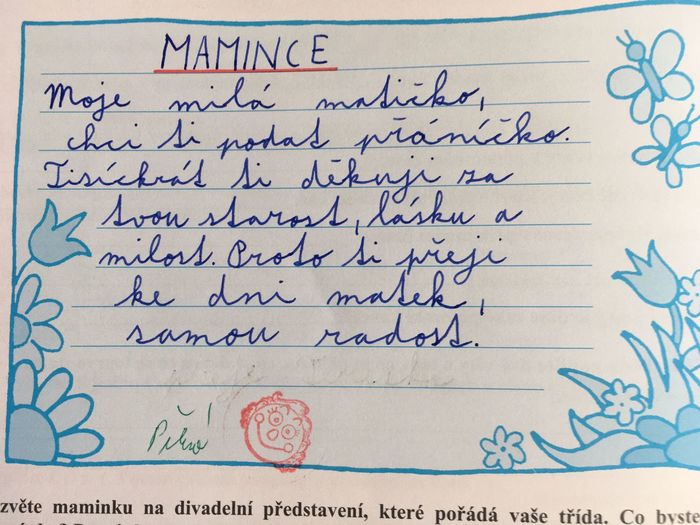 MAMINCE
Moje milá matičko,
chci ti podat přáníčko.
Tisíckrát ti děkuji za
tvou starost, lásku a
milost. Proto ti přeji
ke dni matek,
samou radost.
Pěkné!
zvěte maminku na divadelní představení, které pořádá vaše třída. Co byste